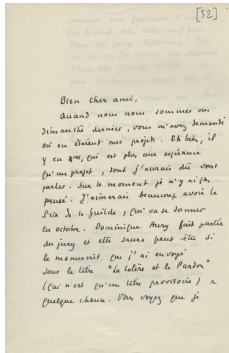 [52]
Bien cher ami,
Quand nous nous sommes vus
dimanche dernier, vous m'avez demandé
où en étaient mes projets. Eh bien, il
y en a un, qui est plus une espérance
qu'un projet, dont j'aurais dû vous
parler. Sur le moment je n'y ai pas
pensé. J'aimerais beaucoup avoir le
Prix de la Guilde, qui va se donner
en octobre. Dominique Aury fait partie
du jury et elle saura peut-être si
le manuscrit que j'ai envoyé
sous le titre "La Colère et le Pardon"
(qui n'est qu'un titre provisoire) a
quelque chance. Vous voyez que je